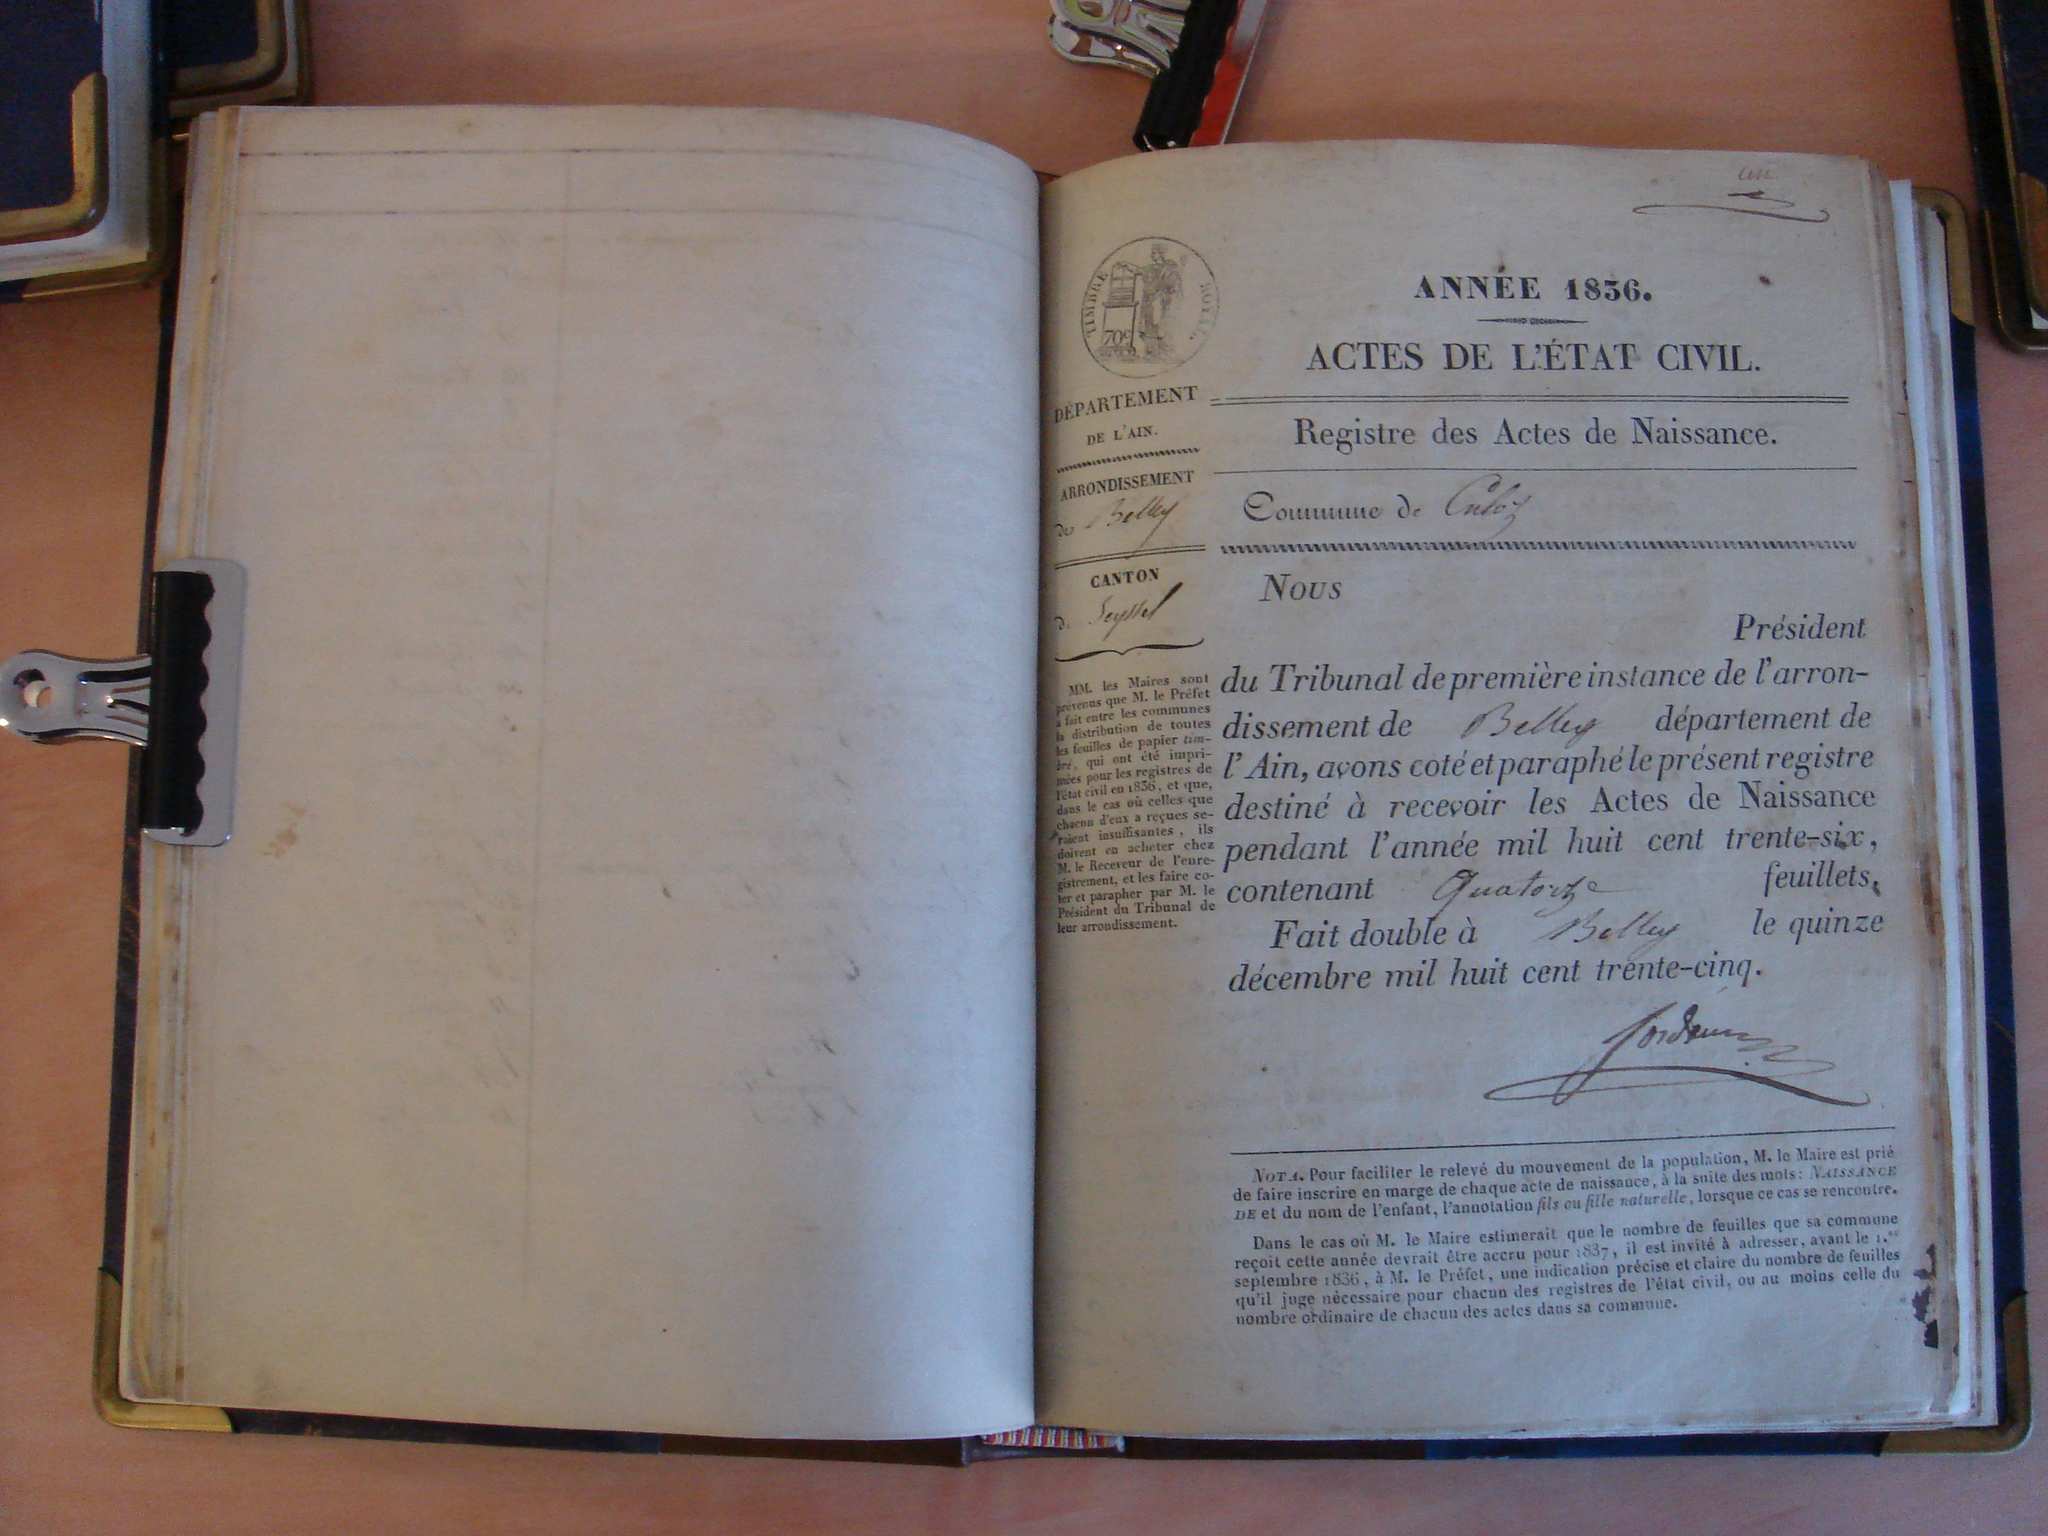 TIMBRE ROYAL
70c
DÉPARTEMENT
DE L'AIN.
ARRONDISSEMENT
de Belley
CANTON
de Seyssel
MM. les Maires sont
prévenus que M. le Préfet
a fait entre les communes
la distribution de toutes
les feuilles de papier tim-
bré, qui ont été impri-
mées pour les registres de
l'état civil en 1836, et que,
dans le cas où celles que
chacun d'eux a reçues se-
raient insuffisantes, ils
doivent en acheter chez
M. le Receveur de l'enre-
gistrement, et les faire co-
ter et parapher par M. le
Président du Tribunal de
leur arrondissement.
ANNÉE 1836.
ACTES DE L'ÉTAT CIVIL.
Registre des Actes de Naissance.
Commune de Culoz
Nous
Président
du Tribunal de première instance de l'arron-
dissement de Belley département de
l'Ain, avons coté et paraphé le présent registre
destiné à recevoir les Actes de Naissance
pendant l'année mil huit cent trente-six,
contenant Quatorze feuillets.
Fait double à Belley le quinze
décembre mil huit cent trente-cinq.
NOTA. Pour faciliter le relevé du mouvement de la population, M. le Maire est prié
de faire inscrire en marge de chaque acte de naissance, à la suite des mots: NAISSANCE
DE et du nom de l'enfant, l'annotation fils ou fille naturelle, lorsque ce cas se rencontre.
Dans le cas où M. le Maire estimerait que le nombre de feuilles que sa commune
reçoit cette année devrait être accru pour 1837, il est invité à adresser, avant le 1.er
septembre 1836, à M. le Préfet, une indication précise et claire du nombre de feuilles
qu'il juge nécessaire pour chacun des registres de l'état civil, ou au moins celle du
nombre ordinaire de chacun des actes dans sa commune.